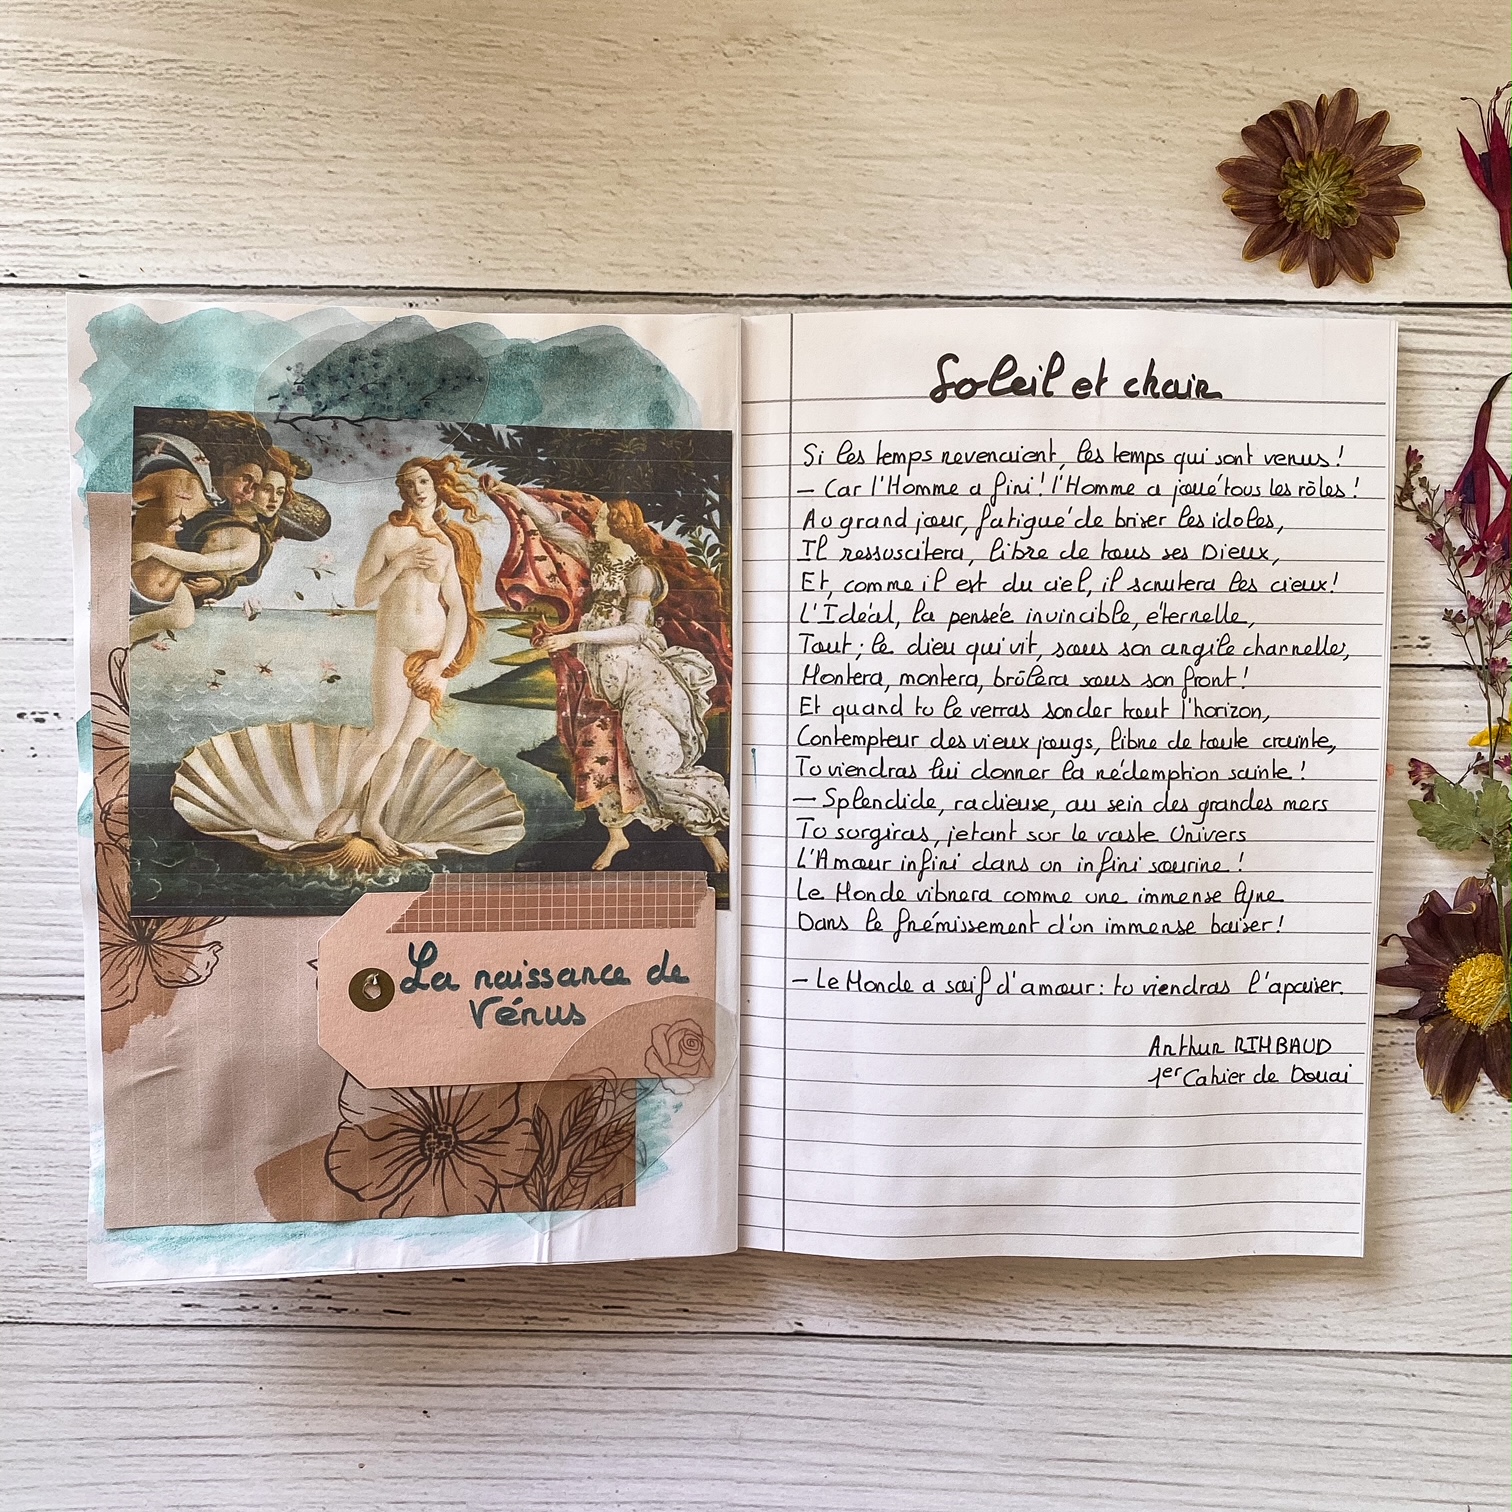 La naissance de
Vénus
Soleil et chair
Si les temps revenaient, les temps qui sont venus !
– Car l'Homme a fini ! l'Homme a joué tous les rôles !
Au grand jour, fatigué de briser les idoles,
Il ressuscitera, libre de tous ses Dieux,
Et, comme il est du ciel, il scrutera les cieux !
L'Idéal, la pensée invincible, éternelle,
Tout ; le dieu qui vit, sous son argile charnelle,
Montera, montera, brûlera sous son front !
Et quand tu le verras sonder tout l'horizon,
Contempteur des vieux jougs, libre de toute crainte,
Tu viendras lui donner la rédemption sainte !
– Splendide, radieuse, au sein des grandes mers
Tu surgiras, jetant sur le vaste Univers
L'Amour infini dans un infini sourire !
Le Monde vibrera comme une immense lyre
Dans le frémissement d'un immense baiser !
– Le Monde a soif d'amour : tu viendras l'apaiser.
Arthur RIMBAUD
1er Cahier de Douai